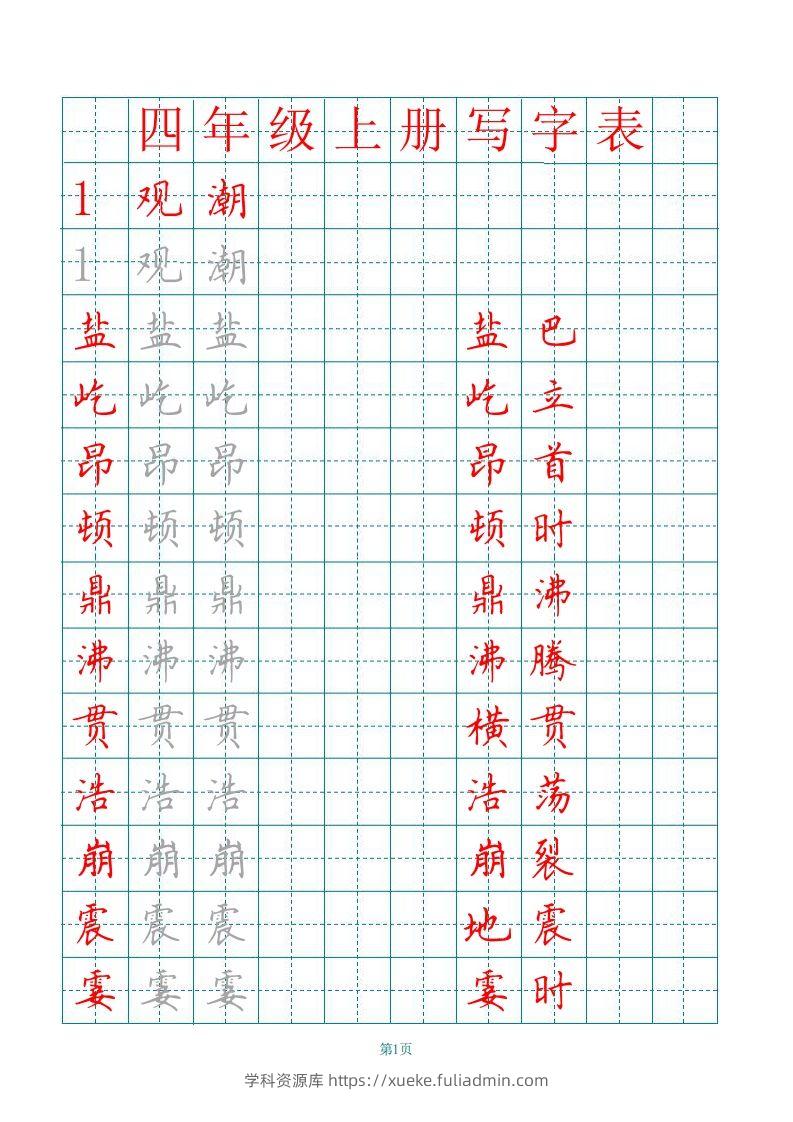 四年级上册写字表
1 观潮
1 观潮
盐 盐 盐 盐巴
屹 屹 屹 屹立
昂 昂 昂 昂首
顿 顿 顿 顿时
鼎 鼎 鼎 鼎沸
沸 沸 沸 沸腾
贯 贯 贯 横贯
浩 浩 浩 浩荡
崩 崩 崩 崩裂
震 震 震 地震
霎 霎 霎 霎时
第1页
学科资源库 https://xueke.fuliadmin.com